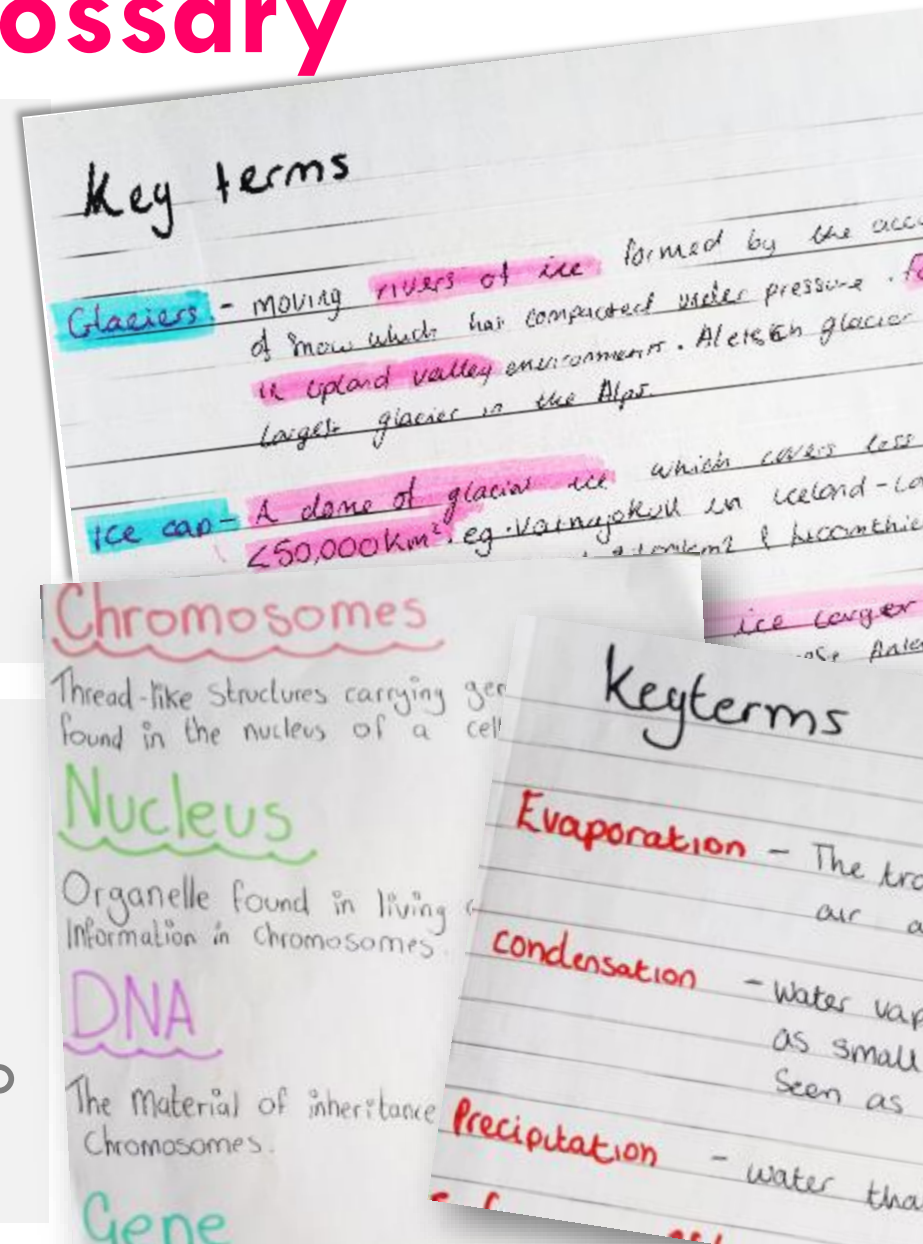 ossary
Key terms
Glaciers - moving rivers of ice formed by the acc
of snow which has compacted under pressure.
in upland valley environments. Aletsch glacier
largest glacier in the Alps.
Ice cap - A dome of glacial ice which covers less
<50,000km². eg. Vatnajokull in iceland -
ice larger
Chromosomes
Thread-like structures carrying gen
found in the nucleus of a cell
Nucleus
Organelle found in living
Information in Chromosomes.
DNA
The Material of inheritance
Chromosomes.
Gene
Keyterms
Evaporation - The tra
air a
Condensation - Water vap
as small
Seen as
Precipitation - water tha